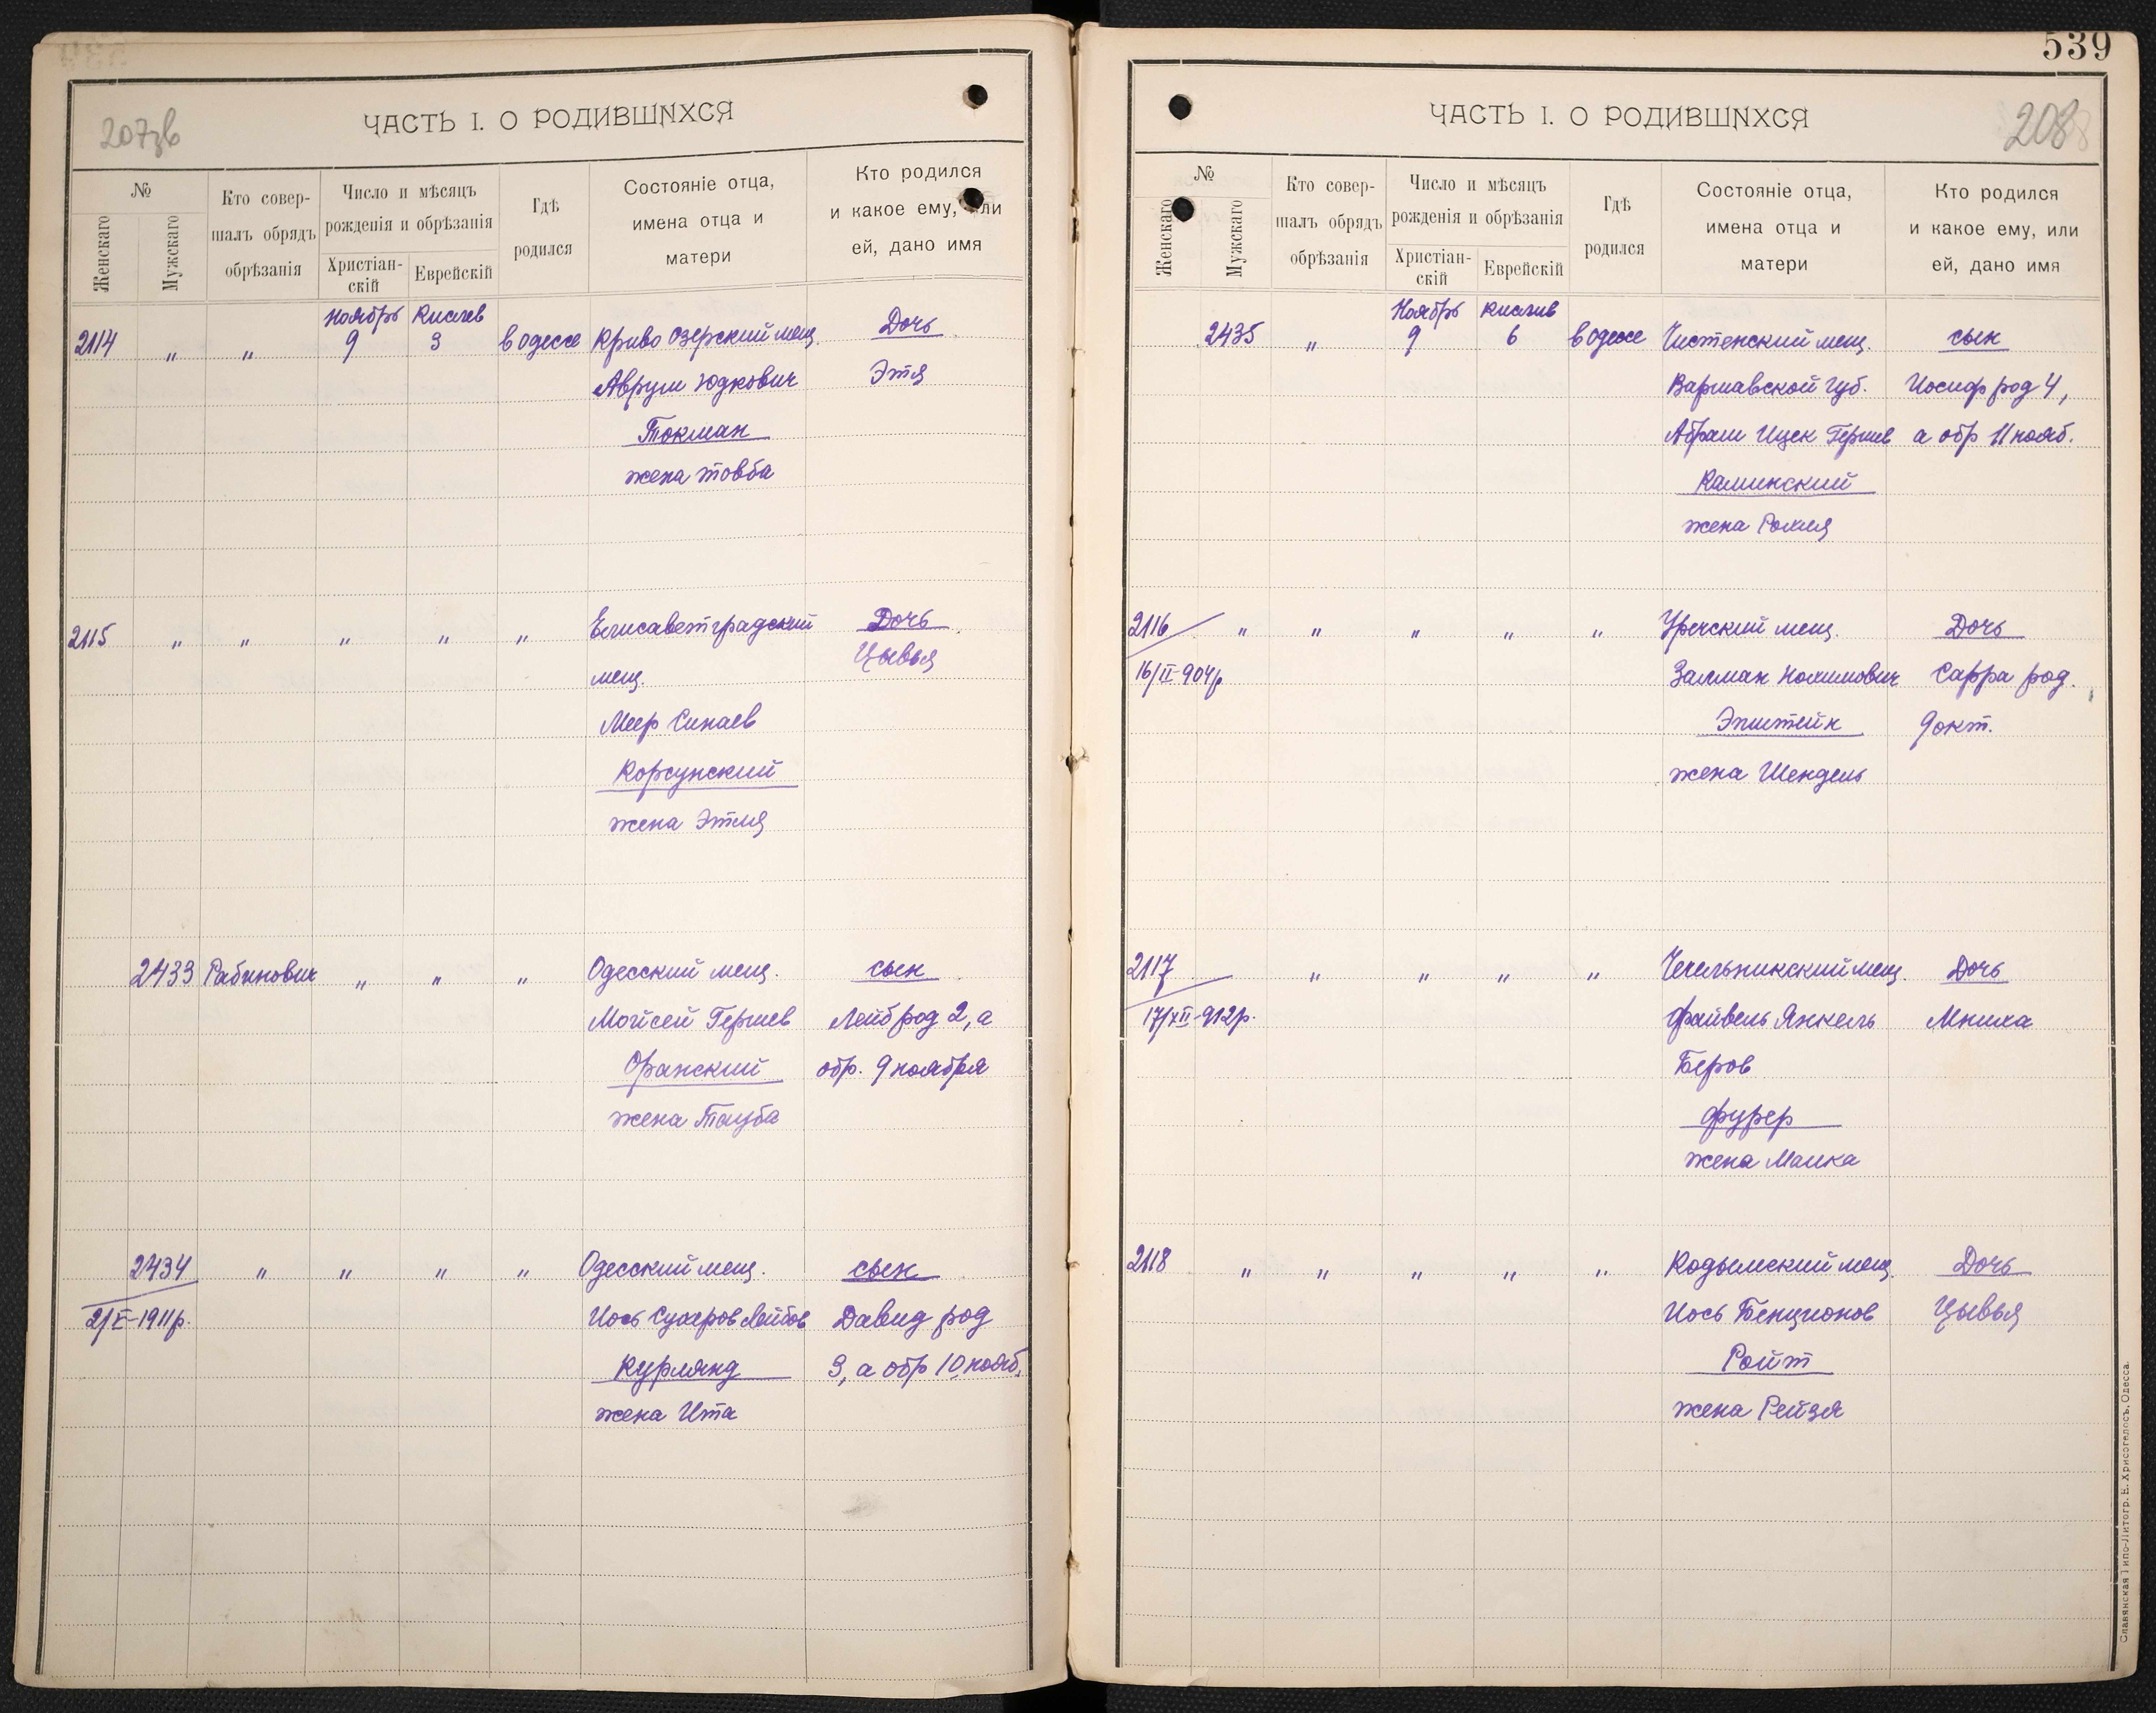 207зв
ЧАСТЬ I. О РОДИВШИХСЯ
№
Женскаго
Мужскаго
Кто совер-
шалъ обрядъ
обрѣзанія
Число и мѣсяцъ
рожденія и обрѣзанія
Христіан-
скій
Еврейскій
Гдѣ
родился
Состояніе отца,
имена отца и
матери
Кто родился
и какое ему, или
ей, дано имя
Ноябрь Кислев
2114 " " 9 3 в Одессе Криво Озерский мещ. Дочь
Аврум Юдкович Этя
Токман
жена Товба
2115 " " " " " Елисаветградский Дочь
мещ. Цывья
Меер Синаев
Корсунский
жена Этля
2433 Рабинович " " " Одесский мещ. сын
Мойсей Гершев Лейб род 2, а
Оранский обр. 9 ноября
жена Тауба
2434 " " " " Одесский мещ. сын
2/V-1911р. Иось Сухеров Лейбов Давид род
Курлянд 3, а обр 10 нояб.
жена Ита
539
ЧАСТЬ I. О РОДИВШИХСЯ
208
№
Женскаго
Мужскаго
Кто совер-
шалъ обрядъ
обрѣзанія
Число и мѣсяцъ
рожденія и обрѣзанія
Христіан-
скій
Еврейскій
Гдѣ
родился
Состояніе отца,
имена отца и
матери
Кто родился
и какое ему, или
ей, дано имя
Ноябрь Кислив
2435 " 9 6 в Одессе Чистенский мещ. сын
Варшавской губ. Иосиф род 4,
Абрам Ицек Гершев а обр 11 нояб.
Каминский
жена Рохля
2116 " " " " " Уречский мещ. Дочь
16/II-904р Залман Нохимович Сарра род.
Эпштейн 9 окт.
жена Шендель
2117 " " " " Чечельникский мещ. Дочь
17/XII-912р. Файвель Янкель Мниха
Беров
Фурер
жена Малка
2118 " " " " " Кодымский мещ. Дочь
Иось Бенционов Цывья
Ройт
жена Рейзя
Славянская Типо-Литогр. Е. Хрисогелосъ, Одесса.